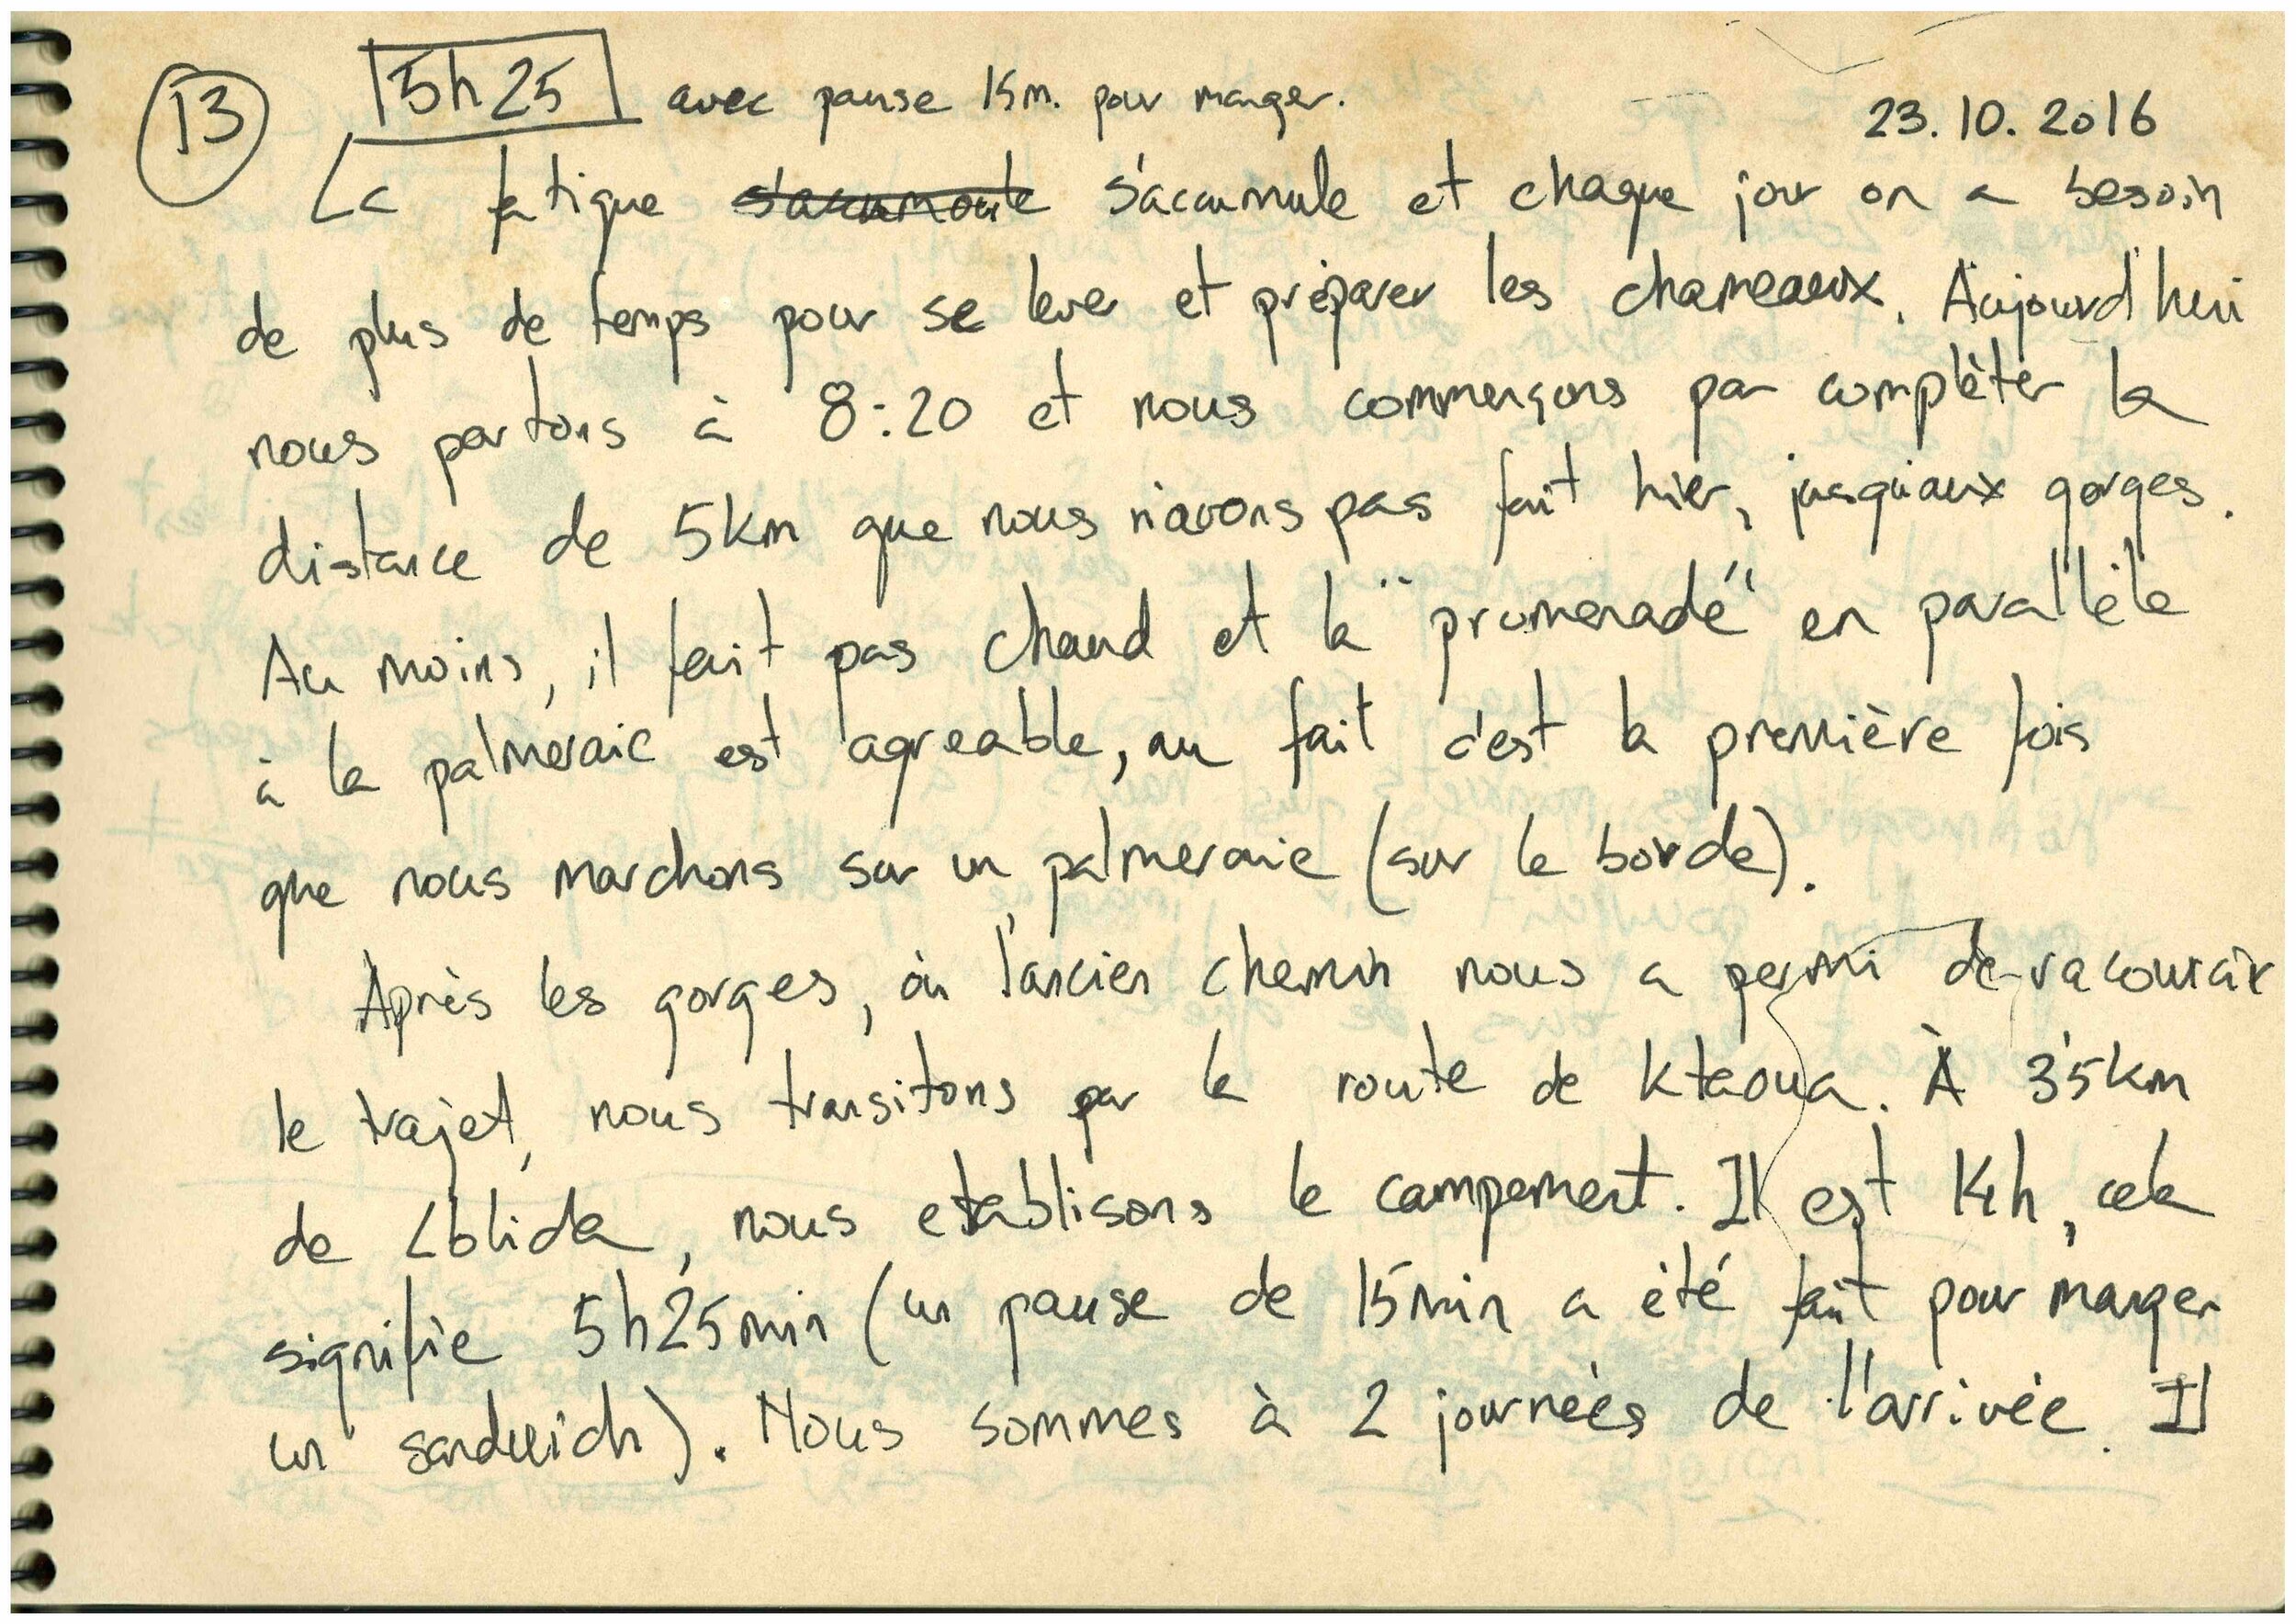 13 5h25 avec pause 15m. pour manger. 23.10.2016
La fatigue s'acumoule s'accumule et chaque jour on a besoin
de plus de temps pour se lever et préparer les chameaux. Aujourd'hui
nous partons à 8:20 et nous commençons par complèter la
distance de 5km que nous n'avons pas fait hier, jusqu'aux gorges.
Au moins, il fait pas chaud et la "promenade" en parallèle
à la palmeraie est agreable, au fait c'est la première fois
que nous marchons sur un palmeraie (sur le borde).
Après les gorges, où l'ancien chemin nous a permi de racourcir
le trajet, nous transitons par la route de Ktaoua. À 3'5km
de Lblida, nous etablisons le campement. Il est 14h, cela
signifie 5h25min (un pause de 15min a été fait pour manger
un sandwich). Nous sommes à 2 journées de l'arrivée. Il